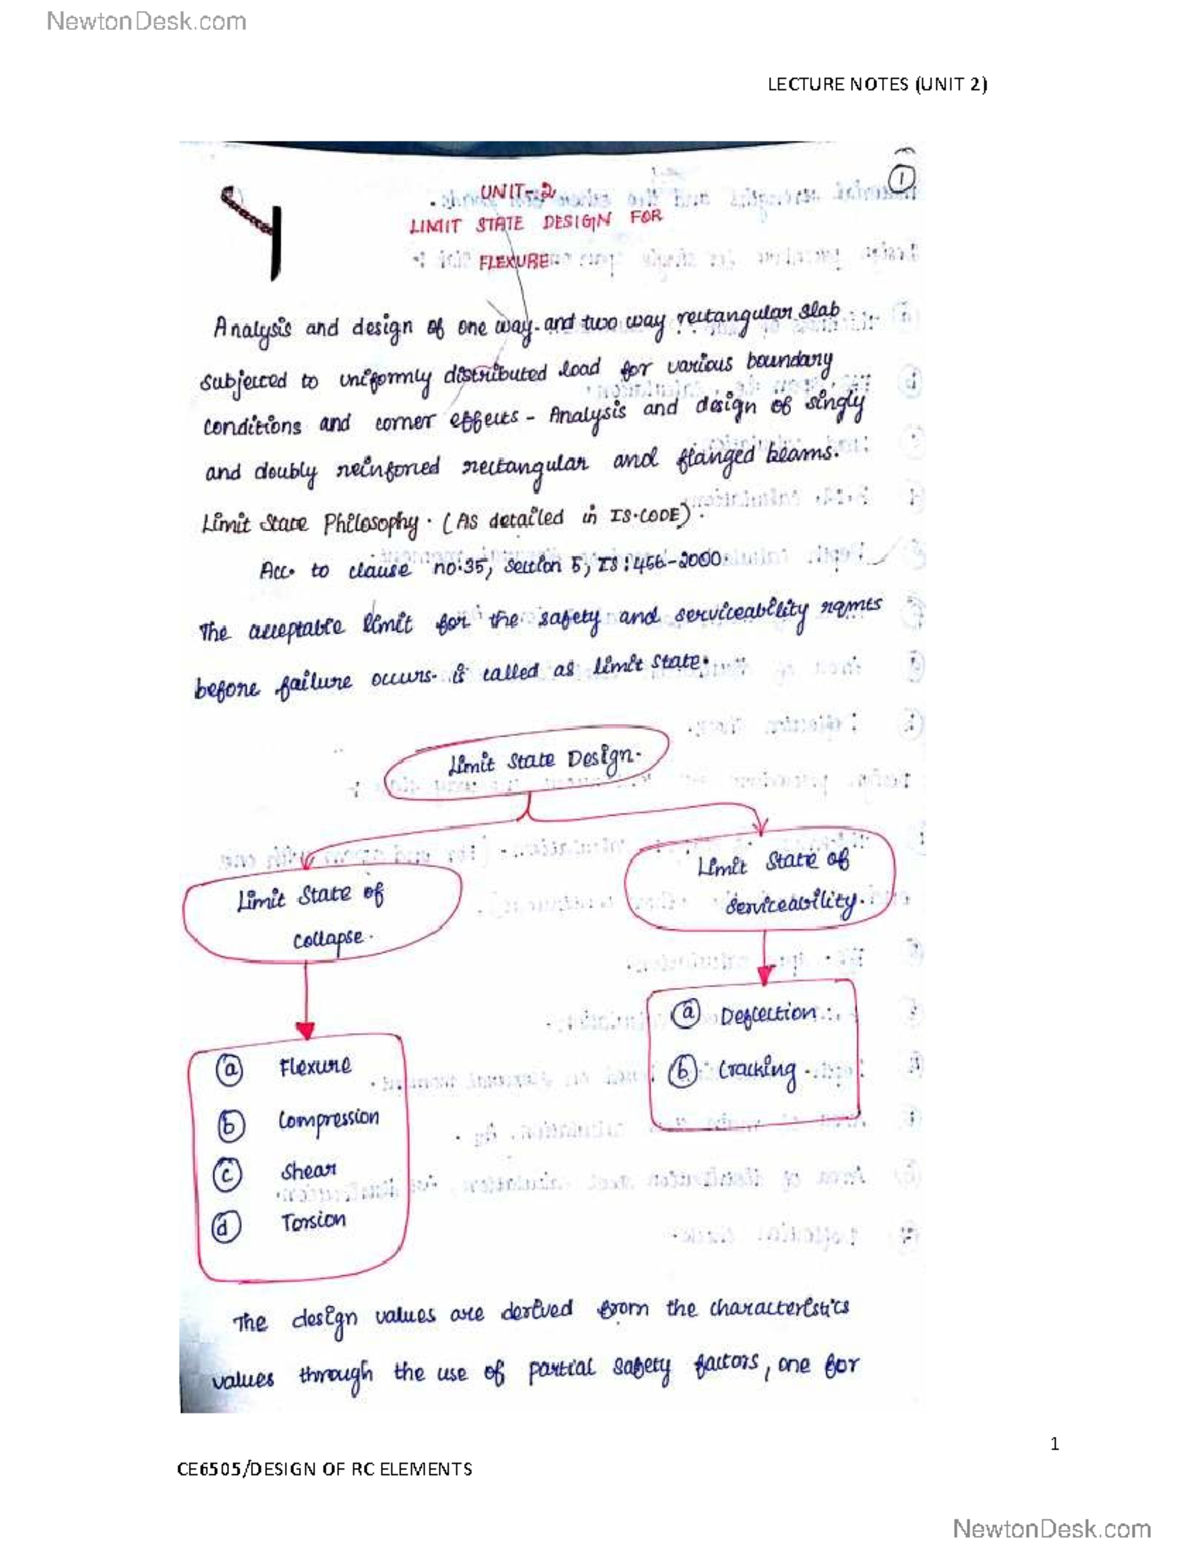 NewtonDesk.com
LECTURE NOTES (UNIT 2)
1
UNIT-2
LIMIT STATE DESIGN FOR
FLEXURE
Analysis and design of one way and two way rectangular slab
subjected to uniformly distributed load for various boundary
conditions and corner effects - Analysis and design of singly
and doubly reinforced rectangular and flanged beams.
Limit State Philosophy. (As detailed in IS.CODE).
Acc. to clause no:35, section 5, IS:456-2000
The acceptable limit for the safety and serviceability rqmts
before failure occurs is called as limit state.
Limit State Design.
Limit State of
collapse.
Limit State of
serviceability.
a Flexure
b Compression
c Shear
d Torsion
a Deflection
b Cracking
The design values are derived from the characteristics
values through the use of partial safety factors, one for
1
CE6505/DESIGN OF RC ELEMENTS
NewtonDesk.com